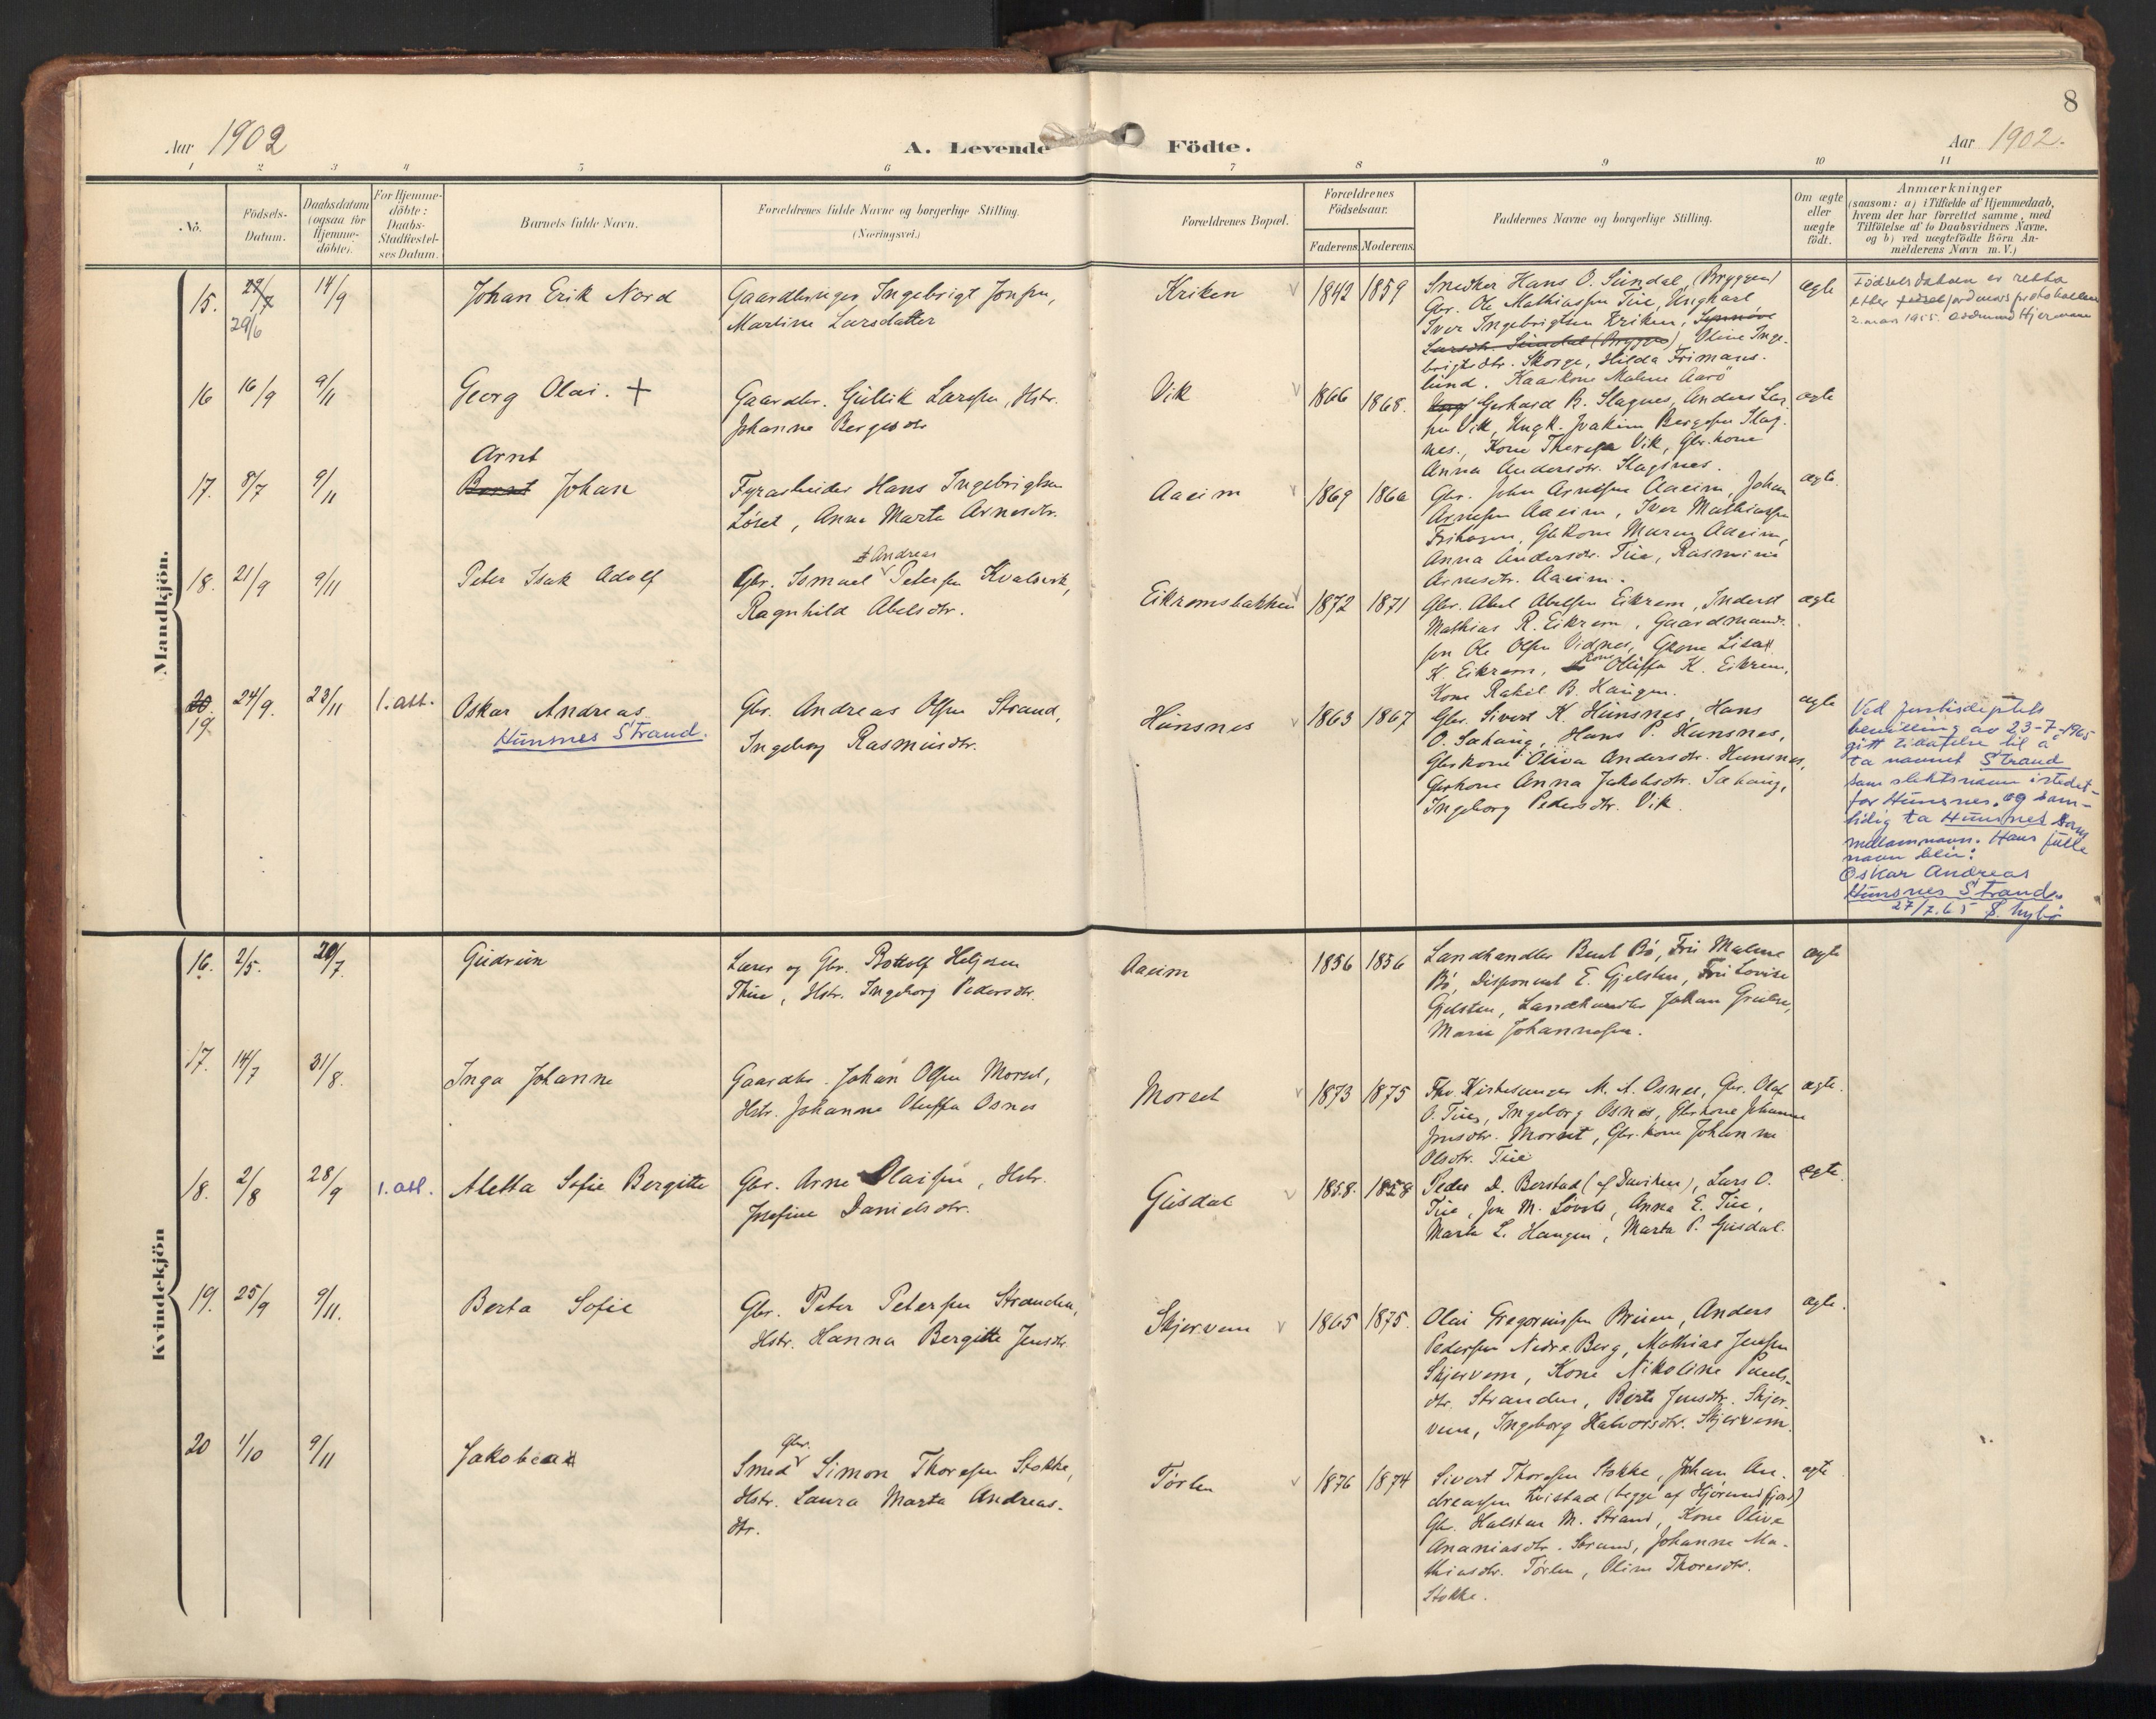 8
Aar 1902
A. Levende Födte.
Aar 1902.
1 2 3 4 5 6 7 8 9 10 11
No.
Födsels-
Datum.
Daabsdatum
(ogsaa for
Hjemme-
döbte).
For Hjemme-
döbte:
Daabs-
Stadfæstel-
ses Datum.
Barnets fulde Navn.
Forældrenes fulde Navne og borgerlige Stilling.
(Næringsvei.)
Forældrenes Bopæl.
Forældrenes
Födselsaar.
Faderens. Moderens.
Faddernes Navne og borgerlige Stilling.
Om ægte
eller
uægte
födt.
Anmærkninger
(saasom: a) i Tilfælde af Hjemmedaab,
hvem der har forrettet samme, med
Tilföielse af to Daabsvidners Navne,
og b) ved uægtefödte Börn An-
melderens Navn m. V.)
Mandkjön.
15. 29/7 29/6 14/9
Johan Erik Nord
Gaardbruger Ingebrigt Jonsen,
Martine Larsdatter
Kriken
1842 1859
Snedker Hans O. Sundal (Bryggen)
Gbr. Ole Mathiassen Tue, Ungkarl
Iver Ingebrigtsen Kriken, Synnöve
Larsdtr. Sundal (Bryggen), Oline Inge-
brigtsdtr. Skorge, Hilda Frimans-
lund. Kaarkone Malene Aarö
ægte
Födselsdatoen er retta
etter jordmors protokollen
2. mars 1955. Hjermann
16 16/9 9/11
Georg Olai. +
Gaardbr. Gullik Larssen, Hstr.
Johanne Bergesdtr
Vik
1866 1868.
Gerhard B. Slagnes, Anders Lar-
sen Vik, Ungk. Joakim Bergesen Slag-
nes, Kone Therese Vik, Gbr.kone
Anna Andersdtr. Slagsnes.
ægte
17. 8/7 9/11
Arnt
Bernt Johan
Fyrarbeider Hans Ingebrigtsen
Löset, Anne Marta Arnesdtr.
Aaeim
1869 1860
Gbr. John Arnesen Aaeim, Johan
Arnesen Aaeim, Iver Mathiassen
Frihagen, Gbkone Maren Aaeim,
Anna Andersdtr. Tue, Rasmine
Arnesdtr. Aaeim.
ægte.
18. 21/9 9/11
Peter Isak Adolf
Andreas
Gbr. Ismael Petersen Kvalsvik,
Ragnhild Abelsdtr.
Eikremsbakken
1872 1871
Gbr. Abel Abelsen Eikrem, Inderst
Mathias R. Eikrem, Gaardmands-
sen Ole Olsen Vidnes, Gkone Lisa
K. Eikrem, Kone Oluffa K. Eikrem,
Kone Rakel B. Haugen.
ægte
20. 19. 24/9. 23/11 1. att.
Oskar Andreas
Hunsnes Strand.
Gbr. Andreas Olsen Strand,
Ingeborg Rasmusdtr.
Hunsnes
1863 1867
Gbr. Sivert K. Hunsnes, Hans
O. Sæhaug, Hans P. Hunsnes,
Gbrkone Oliva Andersdtr. Hunsnes,
Gbrkone Anna Jakobsdtr. Sæhaug,
Ingeborg Pedersdtr. Vik.
ægte
Ved justisdeptets
bevilling av 23-7-1965
gitt tillatelse til å
ta navnet Strand
som slektsnavn istedet-
for Hunsnes, og sam-
tidig ta Hunsnes som
mellomnavn. Hans fulle
navn blir:
Oskar Andreas
Hunsnes Strand.
27/7.65
Kvindekjön
16. 2/5. 20/7
Gudrun
Lærer og Gbr. Bottolf Helgesen
Thue, Hstr. Ingeborg Pedersdtr.
Aaeim
1856 1856
Landhandler Bent Bö, Fru Malene
Bö, Disponent E. Gjelsten, Fru Lovise
Gjelsten, Landhandler Johan
Marie Johannesen.
ægte
17. 14/7 31/8.
Inga Johanne
Gaardbr. Johan Olsen Morset,
Hstr. Johanne Oluffa Osnes
Morset
1873 1875
Fhv. Kirkesanger M. A. Osnes, Gbr. Olaf
O. Tue, Ingeborg Osnes, Gbrkone Johanne
Jensdtr. Morset, Gbr. kone Johanne
Olsdtr. Tue
ægte.
18. 2/8 28/9 1. att.
Aletta Sofie Bergitte
Gbr. Arne Olaisen, Hstr.
Josefine Danielsdtr.
Gusdal
1858. 1858
Peder D. Berstad (af Daviken), Lars O.
Tue, Jon M. Lövold, Anna E. Tue,
Marte L. Haugen, Marta P. Gusdal.
ægte.
19. 25/9 9/11.
Berta Sofie
Gbr. Peter Petersen Stranden,
Hstr. Hanna Bergitte Jensdtr
Skjervem
1865 1875.
Olai Gregoriussen Bruen, Anders
Pedersen Nedre Berg, Mathias Jensen
Skjervem, Kone Nikoline Pauls-
dtr. Stranden, Berte Jensdtr. Skjer-
vem, Ingeborg Halvorsdtr. Skjervem.
ægte.
20 1/10 9/11
Jakobea
Gbr.
Smed Simon Thoresen Stokke,
Hstr. Laura Marta Andreas-
dtr.
Törlen
1876 1874
Sivert Thoresen Stokke, Johan An-
dreassen Kvistad (begge af Hjörundfjord)
Gbr. Halstein M. Strand, Kone Oliva
Ananiasdtr. Strand, Johanne Ma-
thiasdtr. Törlen, Oline Thoresdtr.
Stokke.
ægte